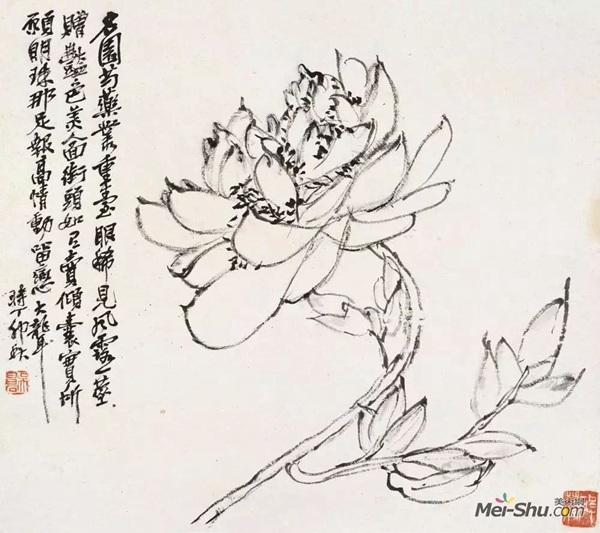 名園芍藥叢重臺眼稀見風露一莖
贈豔色美人面街頭如可賣傾囊實所
願明珠那足報高情動留戀 大聾
時丁卯秋
美術網
Mei-Shu.com